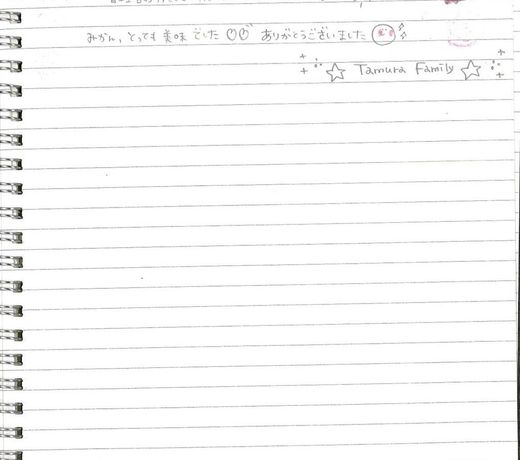 みかん、とっても美味でした ありがとうございました
☆ Tamura Family ☆